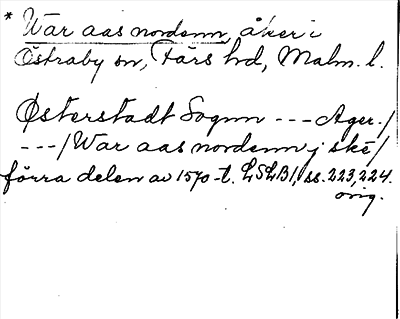 * Wår aas nordenn, åker i
Östraby sn, Färs hd, Malm. l.
Østerstadt Sogнn --- Ager. /
--- / War aas nordenn j ské /
förra delen av 1570-t. LSLB1, ss. 223, 224.
orig.